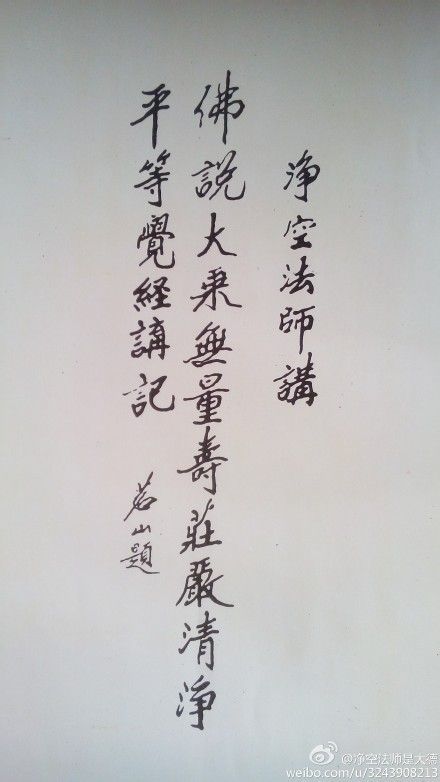 净空法师講
佛説大乗無量壽莊嚴清净
平等覺経講記
茗山題
@净空法师是大德
weibo.com/u/3243908213